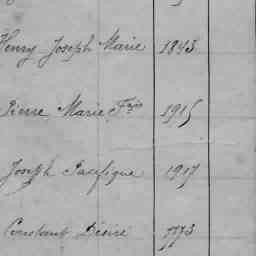 Henry Joseph Marie 1843
Pierre Marie Fçois 1915
Joseph Pacifique 1917
Constant Désiré 1773